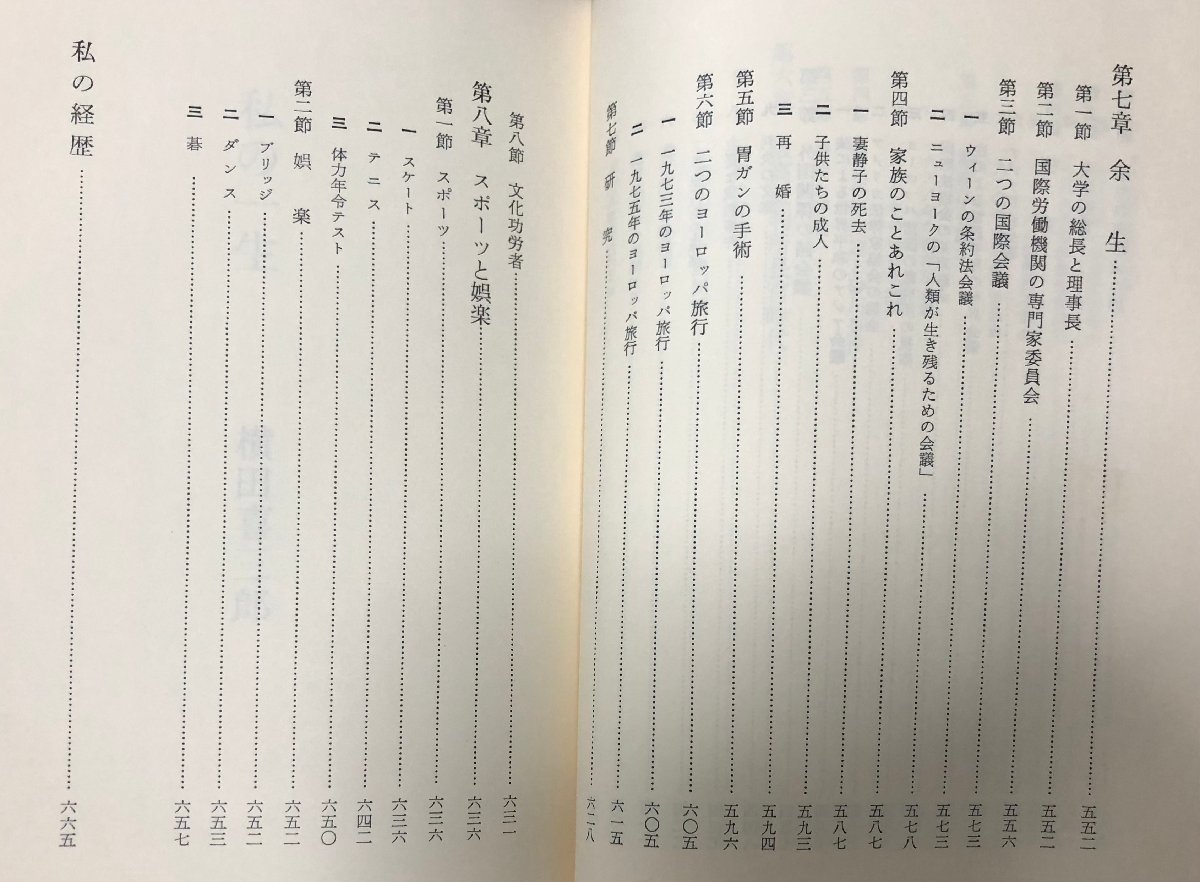 第七章 余生……五五二
第一節 大学の総長と理事長……五五二
第二節 国際労働機関の専門家委員会……五五六
第三節 二つの国際会議……五七三
一 ウィーンの条約法会議……五七三
二 ニューヨークの「人類が生き残るための会議」……五七八
第四節 家族のことあれこれ……五八七
一 妻静子の死去……五八七
二 子供たちの成人……五九三
三 再婚……五九四
第五節 胃ガンの手術……五九六
第六節 二つのヨーロッパ旅行……六〇五
一 一九七三年のヨーロッパ旅行……六〇五
二 一九七五年のヨーロッパ旅行……六一五
第七節 研究……六二八
第八節 文化功労者……六三一
第八章 スポーツと娯楽……六三六
第一節 スポーツ……六三六
一 スケート……六三六
二 テニス……六四二
三 体力年令テスト……六五〇
第二節 娯楽……六五二
一 ブリッジ……六五二
二 ダンス……六五三
三 碁……六五七
私の経歴……六六五